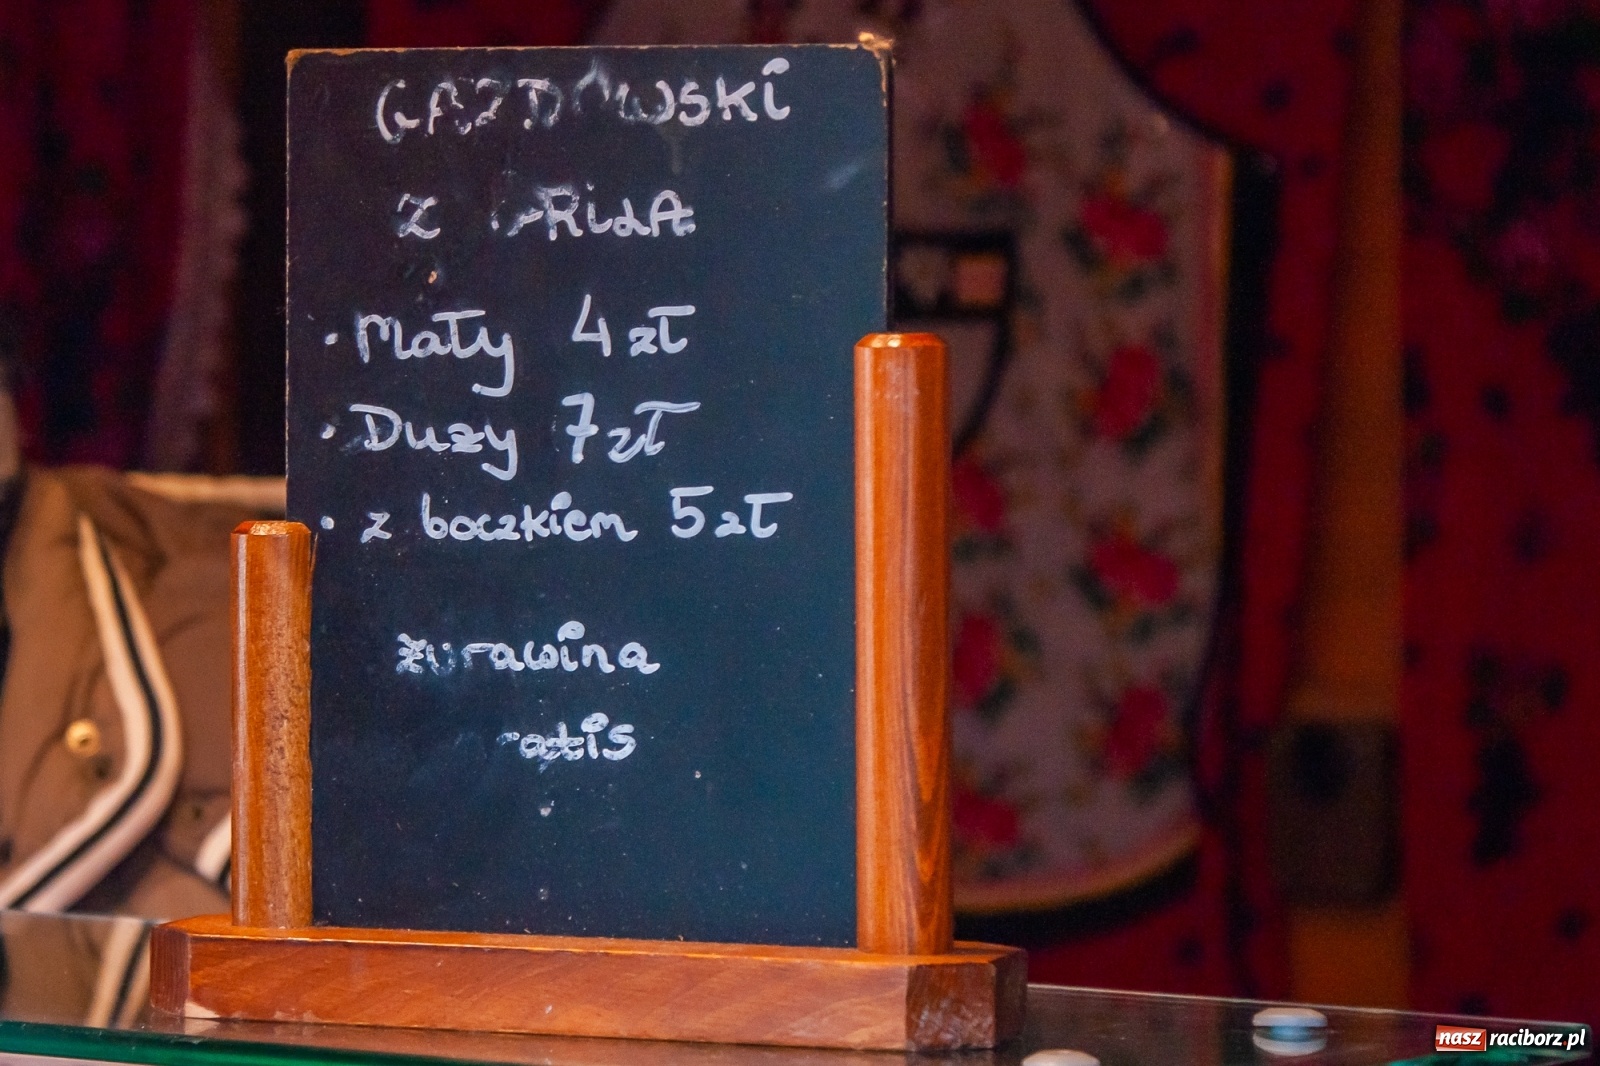 GAZDOWSKI
Z GRILLA
• Mały 4 zł
• Duży 7 zł
• z boczkiem 5 zł
żurawina
gratis
nasz raciborz.pl